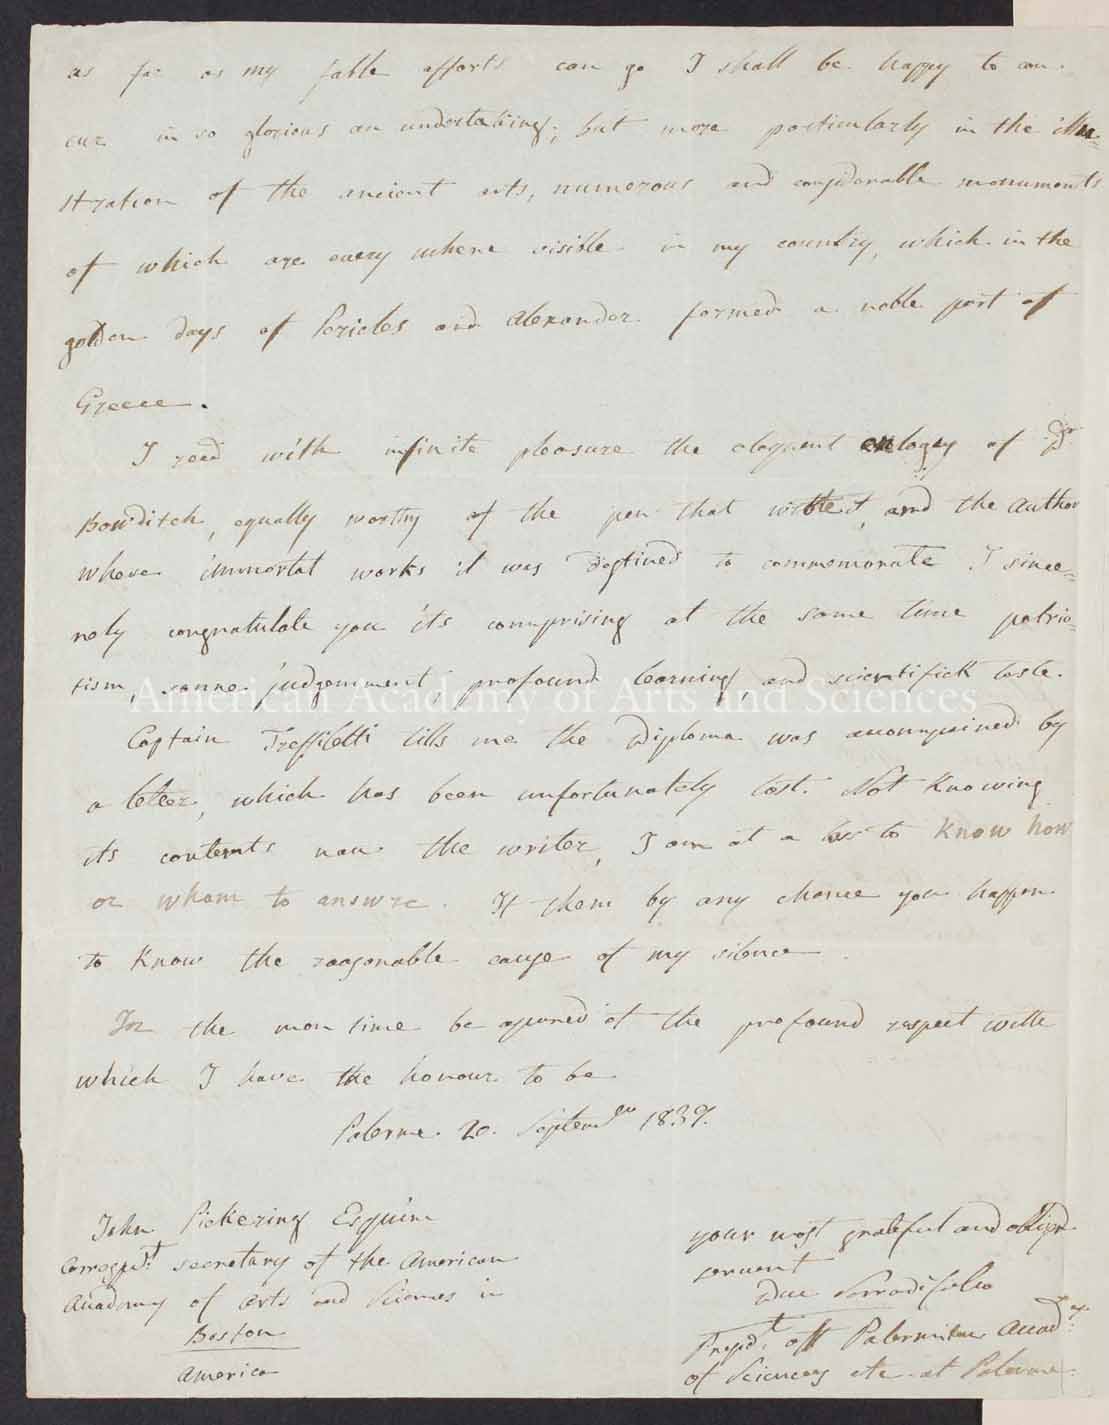 as far as my fable efforts can go I shall be happy to con-
cur in so glorious an undertaking; but more particularly in the illu=
stration of the ancient arts, numerous and considerable monuments
of which are every where visible in my country, which in the
golden days of Pericles and Alexander formed a noble part of
Greece.
I read with infinite pleasure the eloquent eulogy of Dr
Bowditch, equally worthy of the pen that wrote it, and the author
whose immortal works it was destined to commemorate I since=
rely congratulate you it's comprising at the same time patrio=
tism, sanne judgemment, profound learning, and scientifick taste.
American Academy of Arts and Sciences
Captain Treffiletti tills me the Diploma was accompained by
a leteer, which has been unfortunately lost. Not Knowing
its contents nau the writer, I am at a los to Know how
or wham to answre. If them by any chance you happen
to Know the reasonable cause of my silence.
In the mean time be assured of the profound respect with
which I have the honour to be
Palerme 20. Septembre 1839.
John Pickering Esquire
Correspdt. secretary of the American
Academy of Arts and Sciences in
Boston
America
your most grateful and obliged
servent
Duc Serradifalco
Presdt. off Palermitan Acad
of Sciences etc. at Palerme